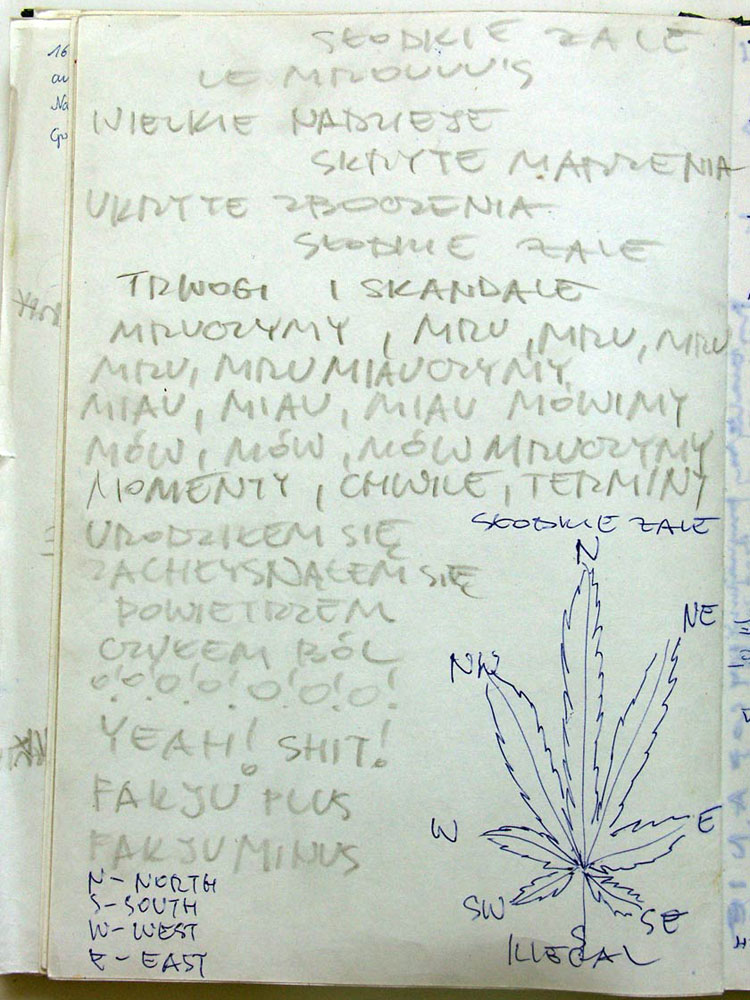 SŁODKIE ŻALE
LE MROUUU'S
WIELKIE NADZIEJE
SKRYTE MARZENIA
UKRYTE ZBOCZENIA
SŁODKIE ŻALE
TRWOGI I SKANDALE
MRUCZYMY, MRU, MRU, MRU
MRU, MRU MIAUCZYMY
MIAU, MIAU, MIAU MÓWIMY
MÓW, MÓW, MÓW MRUCZYMY
MOMENTY, CHWILE, TERMINY
URODZIŁEM SIĘ
ZACHŁYSNĄŁEM SIĘ
POWIETRZEM
CZUŁEM BÓL
O! O! O! O! O! O! O!
YEAH! SHIT!
FAKJU PLUS
FAKJU MINUS
N - NORTH
S - SOUTH
W - WEST
E - EAST
SŁODKIE ŻALE
N
NE
NW
W
E
SW
SE
S
ILLEGAL
16
au
Na